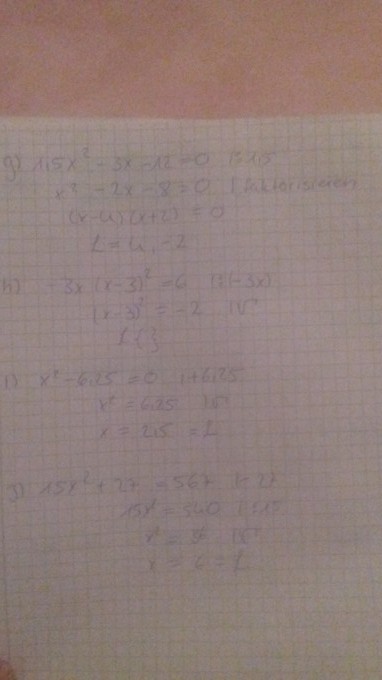 g) 1,5x² - 3x - 12 = 0 |:1,5
x² - 2x - 8 = 0 | Faktorisieren
(x-4)(x+2) = 0
L = 4, -2
h) -3x (x-3)² = 6 |:(-3x)
(x-3)² = -2 |√
L{}
i) x² - 6,25 = 0 |+6,25
x² = 6,25 |√
x = 2,5 = L
j) 15x² + 27 = 567 |-27
15x² = 540 |:15
x² = |√
x = 6 = L